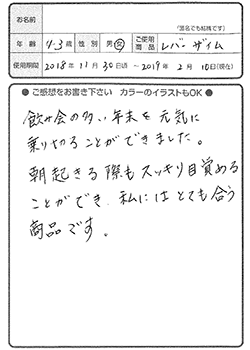 お名前
(匿名でも結構です)
年齢 43歳 性別 男・女 ご使用商品 レバーザイム
使用期間 2018年11月30日頃 〜 2019年2月10日(現在)
● ご感想をお書き下さい カラーのイラストもOK ●
飲み会の多い年末を元気に
乗り切ることができました。
朝起きる際もスッキリ目覚める
ことができ、私にはとても合う
商品です。